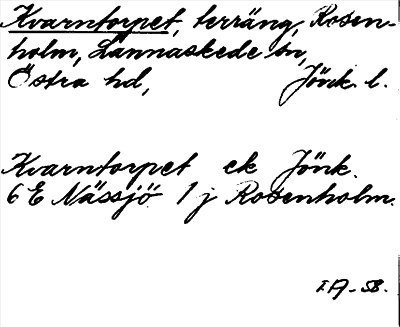 Kvarntorpet, terräng, Rosen-
holm, Lannaskede sn,
Östra hd, Jönk. l.
Kvarntorpet ek Jönk.
6 E Nässjö 1 j Rosenholm.
I.A.-58.